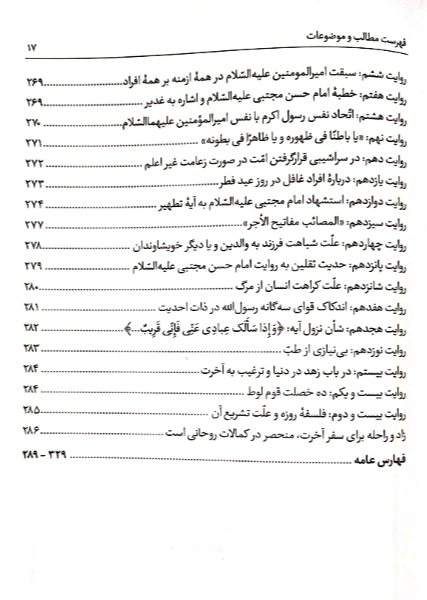 فهرست مطالب و موضوعات ۱۷
روایت ششم: سبقت امیرالمومنین علیه‌السّلام در همهٔ ازمنه بر همهٔ افراد ۲۶۹
روایت هفتم: خطبهٔ امام حسن مجتبی علیه‌السّلام و اشاره به غدیر ۲۶۹
روایت هشتم: اتّحاد نفس رسول اکرم با نفس امیرالمؤمنین علیهماالسّلام ۲۷۰
روایت نهم: «یا باطنًا فی ظهوره و یا ظاهرًا فی بطونه» ۲۷۱
روایت دهم: در سراشیبی قرارگرفتن امّت در صورت زعامت غیر اعلم ۲۷۲
روایت یازدهم: دربارهٔ افراد غافل در روز عید فطر ۲۷۳
روایت دوازدهم: استشهاد امام مجتبی علیه‌السّلام به آیهٔ تطهیر ۲۷۴
روایت سیزدهم: «المصائب مفاتیح الأجر» ۲۷۷
روایت چهاردهم: علّت شباهت فرزند به والدین و یا دیگر خویشاوندان ۲۷۸
روایت پانزدهم: حدیث ثقلین به روایت امام حسن مجتبی علیه‌السّلام ۲۷۹
روایت شانزدهم: علّت کراهت انسان از مرگ ۲۸۰
روایت هفدهم: اندکاک قوای سه‌گانه رسول‌الله در ذات احدیت ۲۸۱
روایت هجدهم: شأن نزول آیه: ﴿وَإِذَا سَأَلَكَ عِبَادِی عَنِّی فَإِنِّی قَرِیبٌ...﴾ ۲۸۲
روایت نوزدهم: بی‌نیازی از طبّ ۲۸۳
روایت بیستم: در باب زهد در دنیا و ترغیب به آخرت ۲۸۴
روایت بیست و یکم: ده خصلت قوم لوط ۲۸۴
روایت بیست و دوم: فلسفهٔ روزه و علّت تشریع آن ۲۸۵
زاد و راحله برای سفر آخرت، منحصر در کمالات روحانی است ۲۸۶
فهارس عامه ۳۲۹ - ۲۸۹